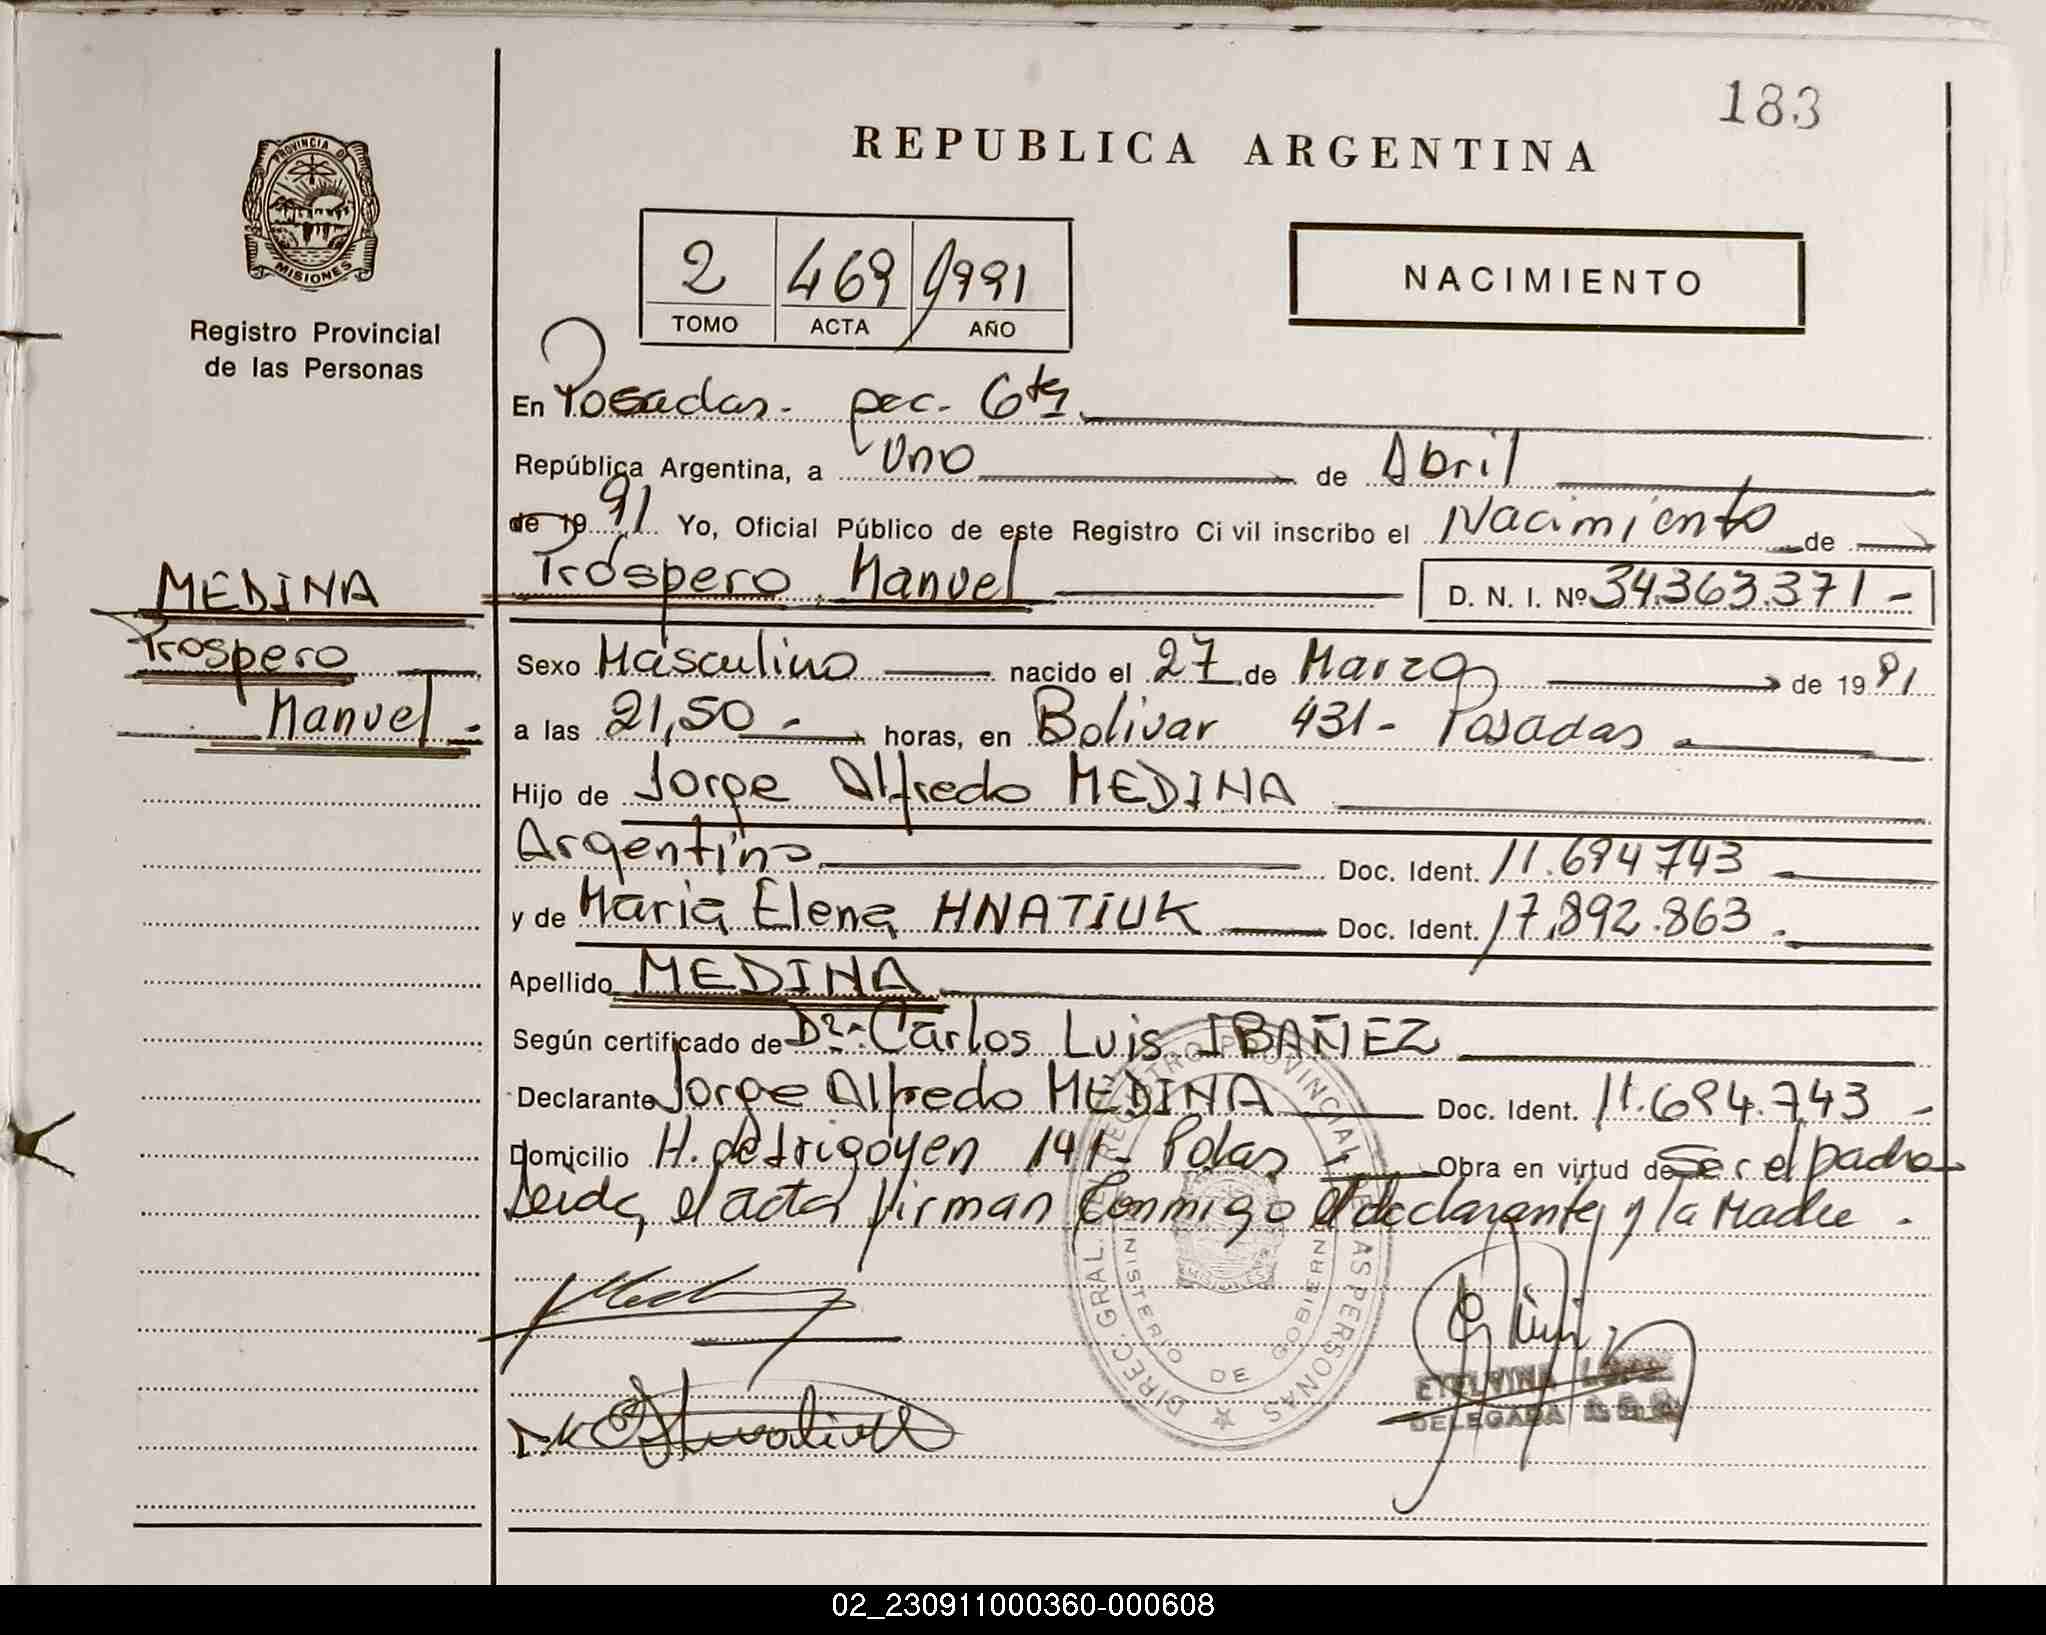 183
REPUBLICA ARGENTINA
PROVINCIA DE
MISIONES
Registro Provincial
de las Personas
2 469 1991
TOMO ACTA AÑO
NACIMIENTO
En Posadas - sec. 6ta.
República Argentina, a Uno de Abril
de 1991 Yo, Oficial Público de este Registro Civil inscribo el Nacimiento de
Próspero Manuel D. N. I. Nº 34.363.371 -
MEDINA
Prospero
Manuel -
Sexo Masculino nacido el 27 de Marzo de 1991
a las 21,50 - horas, en Bolivar 431 - Posadas
Hijo de Jorge Alfredo MEDINA
Argentino Doc. Ident. 11.694743
y de Maria Elena HNATIUK Doc. Ident. 17.892.863.
Apellido MEDINA
Según certificado de Dr. Carlos Luis IBAÑEZ
Declarante Jorge Alfredo MEDINA Doc. Ident. 11.694.743 -
Domicilio H. de Irigoyen 141 - Pdas Obra en virtud de Ser el padre
Leida, el acta firman Conmigo el declarante y la Madre .
DIREC. GRAL. DEL REGISTRO PROVINCIAL DE LAS PERSONAS
MINISTERIO DE GOBIERNO
ETELVINA LOPEZ
DELEGADA
02_230911000360-000608